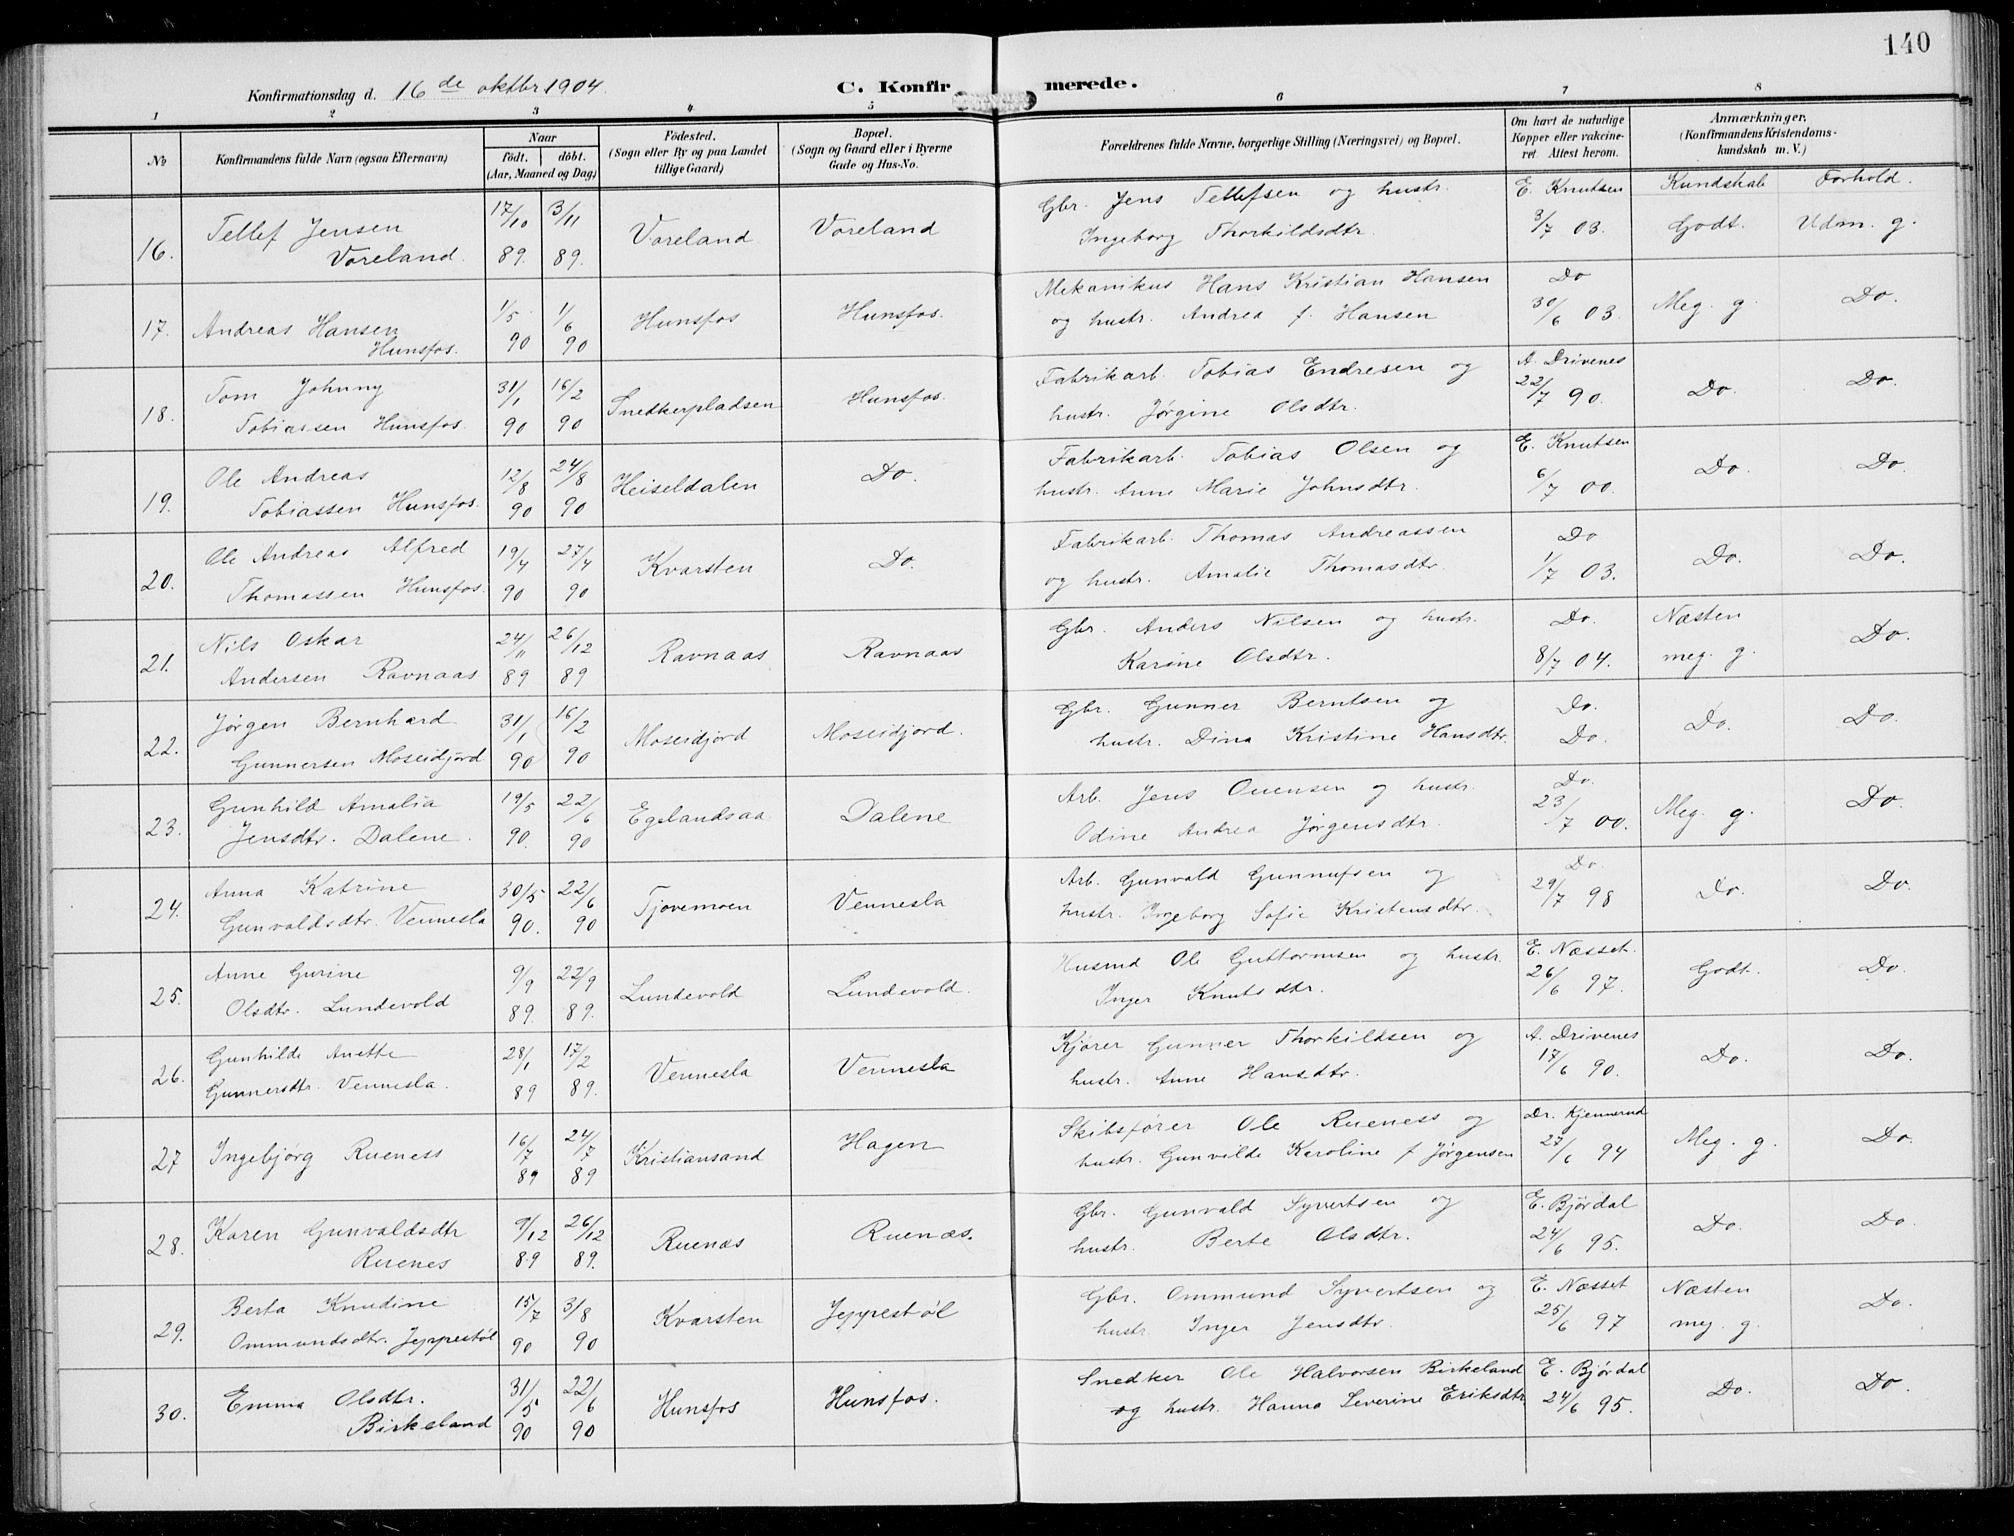 140
Konfirmationsdag d. 16de oktbr 1904.
C. Konfirmerede.
1 2 3 4 5 6 7 8
No
Konfirmandens fulde Navn (ogsaa Efternavn)
Naar
födt. döbt.
(Aar, Maaned og Dag)
Födested.
(Sogn eller By og paa Landet
tillige Gaard)
Bopæl.
(Sogn og Gaard eller i Byerne
Gade og Hus-No.
Forældrenes fulde Navne, borgerlige Stilling (Næringsvei) og Bopæl.
Om havt de naturlige
Kopper eller vakcine-
ret. Attest herom.
Anmærkninger,
(Konfirmandens Kristendoms-
kundskab m. V.)
Kundskab Forhold.
16. Tellef Jensen Voreland. 17/10 89. 3/11 89. Voreland Voreland Gbr. Jens Tellefsen og hustr. Ingeborg Thorkildsdtr. E. Knutsen 3/7 03. Godt. Udm. g.
17. Andreas Hansen Hunsfos. 1/5 90 1/6 90 Hunsfos Hunsfos. Mekanikus Hans Kristian Hansen og hustr. Andrea f. Hansen Do 30/6 03. Meg. g. Do.
18. Tom Johnny Tobiassen Hunsfos. 31/1 90 16/2 90 Snedkerpladsen Hunsfos. Fabrikarb. Tobias Endresen og hustr. Jørgine Olsdtr. A. Drivenes 22/7 90. Do. Do.
19. Ole Andreas Tobiassen Hunsfos. 12/8 90 24/8 90 Heiseldalen Do. Fabrikarb. Tobias Olsen og hustr. Anne Marie Johnsdtr. E. Knutsen 6/7 00. Do. Do.
20. Ole Andreas Alfred Thomassen Hunsfos. 19/4 90 27/4 90 Kvarsten Do. Fabrikarb. Thomas Andreassen og hustr. Amalie Thomasdtr. Do 1/7 03. Do. Do.
21. Nils Oskar Andersen Ravnaas 24/11 89 26/12 89 Ravnaas Ravnaas Gbr. Anders Nilsen og hustr. Karine Olsdtr. Do. 8/7 04. Næsten meg. g. Do.
22. Jørgen Bernhard Gunnersen Moseidjord 31/1 90 16/2 90 Moseidjord Moseidjord. Gbr. Gunner Berntsen og hustr. Dina Kristine Hansdtr. Do. Do. Do. Do.
23. Gunhild Amalia Jensdtr. Dalene. 19/5 90. 22/6 90 Egelandsaa Dalene Arb. Jens Ouensen og hustr. Odine Andrea Jørgensdtr. Do. 23/7 00. Meg. g. Do.
24. Anna Katrine Gunvaldsdtr. Vennesla 30/5 90. 22/6 90 Tjovemoen Vennesla Arb. Gunvald Gunnufsen og hustr. Ingeborg Sofie Kristensdtr. Do. 29/7 98 Do. Do.
25. Anne Gurine Olsdtr. Lundevold 9/9 89. 22/9 89. Lundevold Lundevold. Husmd Ole Guttormsen og hustr. Inger Knutsdtr. E. Næsset. 26/6 97. Godt. Do.
26. Gunhilde Anette Gunnersdtr. Vennesla. 28/1 89 17/2 89. Vennesla Vennesla Kjører Gunner Thorkildsen og hustr. Anne Hansdtr. A. Drivenes 17/6 90. Do. Do.
27 Ingebjørg Rueness 16/7 89 24/7 89 Kristiansand Hagen Skibsfører Ole Rueness og hustr. Gunvilde Karoline f Jørgensen Dr. Kjennerud 27/6 94 Meg. g. Do.
28. Karen Gunvaldsdtr Ruenes 9/12 89 26/12 89. Ruenæs Ruenæs. Gbr. Gunvald Syvertsen og hustr. Berte Olsdtr. E. Bjørdal 24/6 95. Do. Do.
29. Berta Knudine Ommundsdtr. Jeppestøl 15/7 90 3/8 90 Kvarsten Jeppestøl Gbr. Ommund Syvertsen og hustr. Inger Jensdtr. E. Næsset 25/6 97 Næsten meg. g. Do.
30. Emma Olsdtr. Birkeland 31/5 90 22/6 90 Hunsfos Hunsfos. Snedker Ole Halvorsen Birkeland og hustr. Hanna Severine Eriksdtr E. Bjørdal 24/6 95. Do. Do.